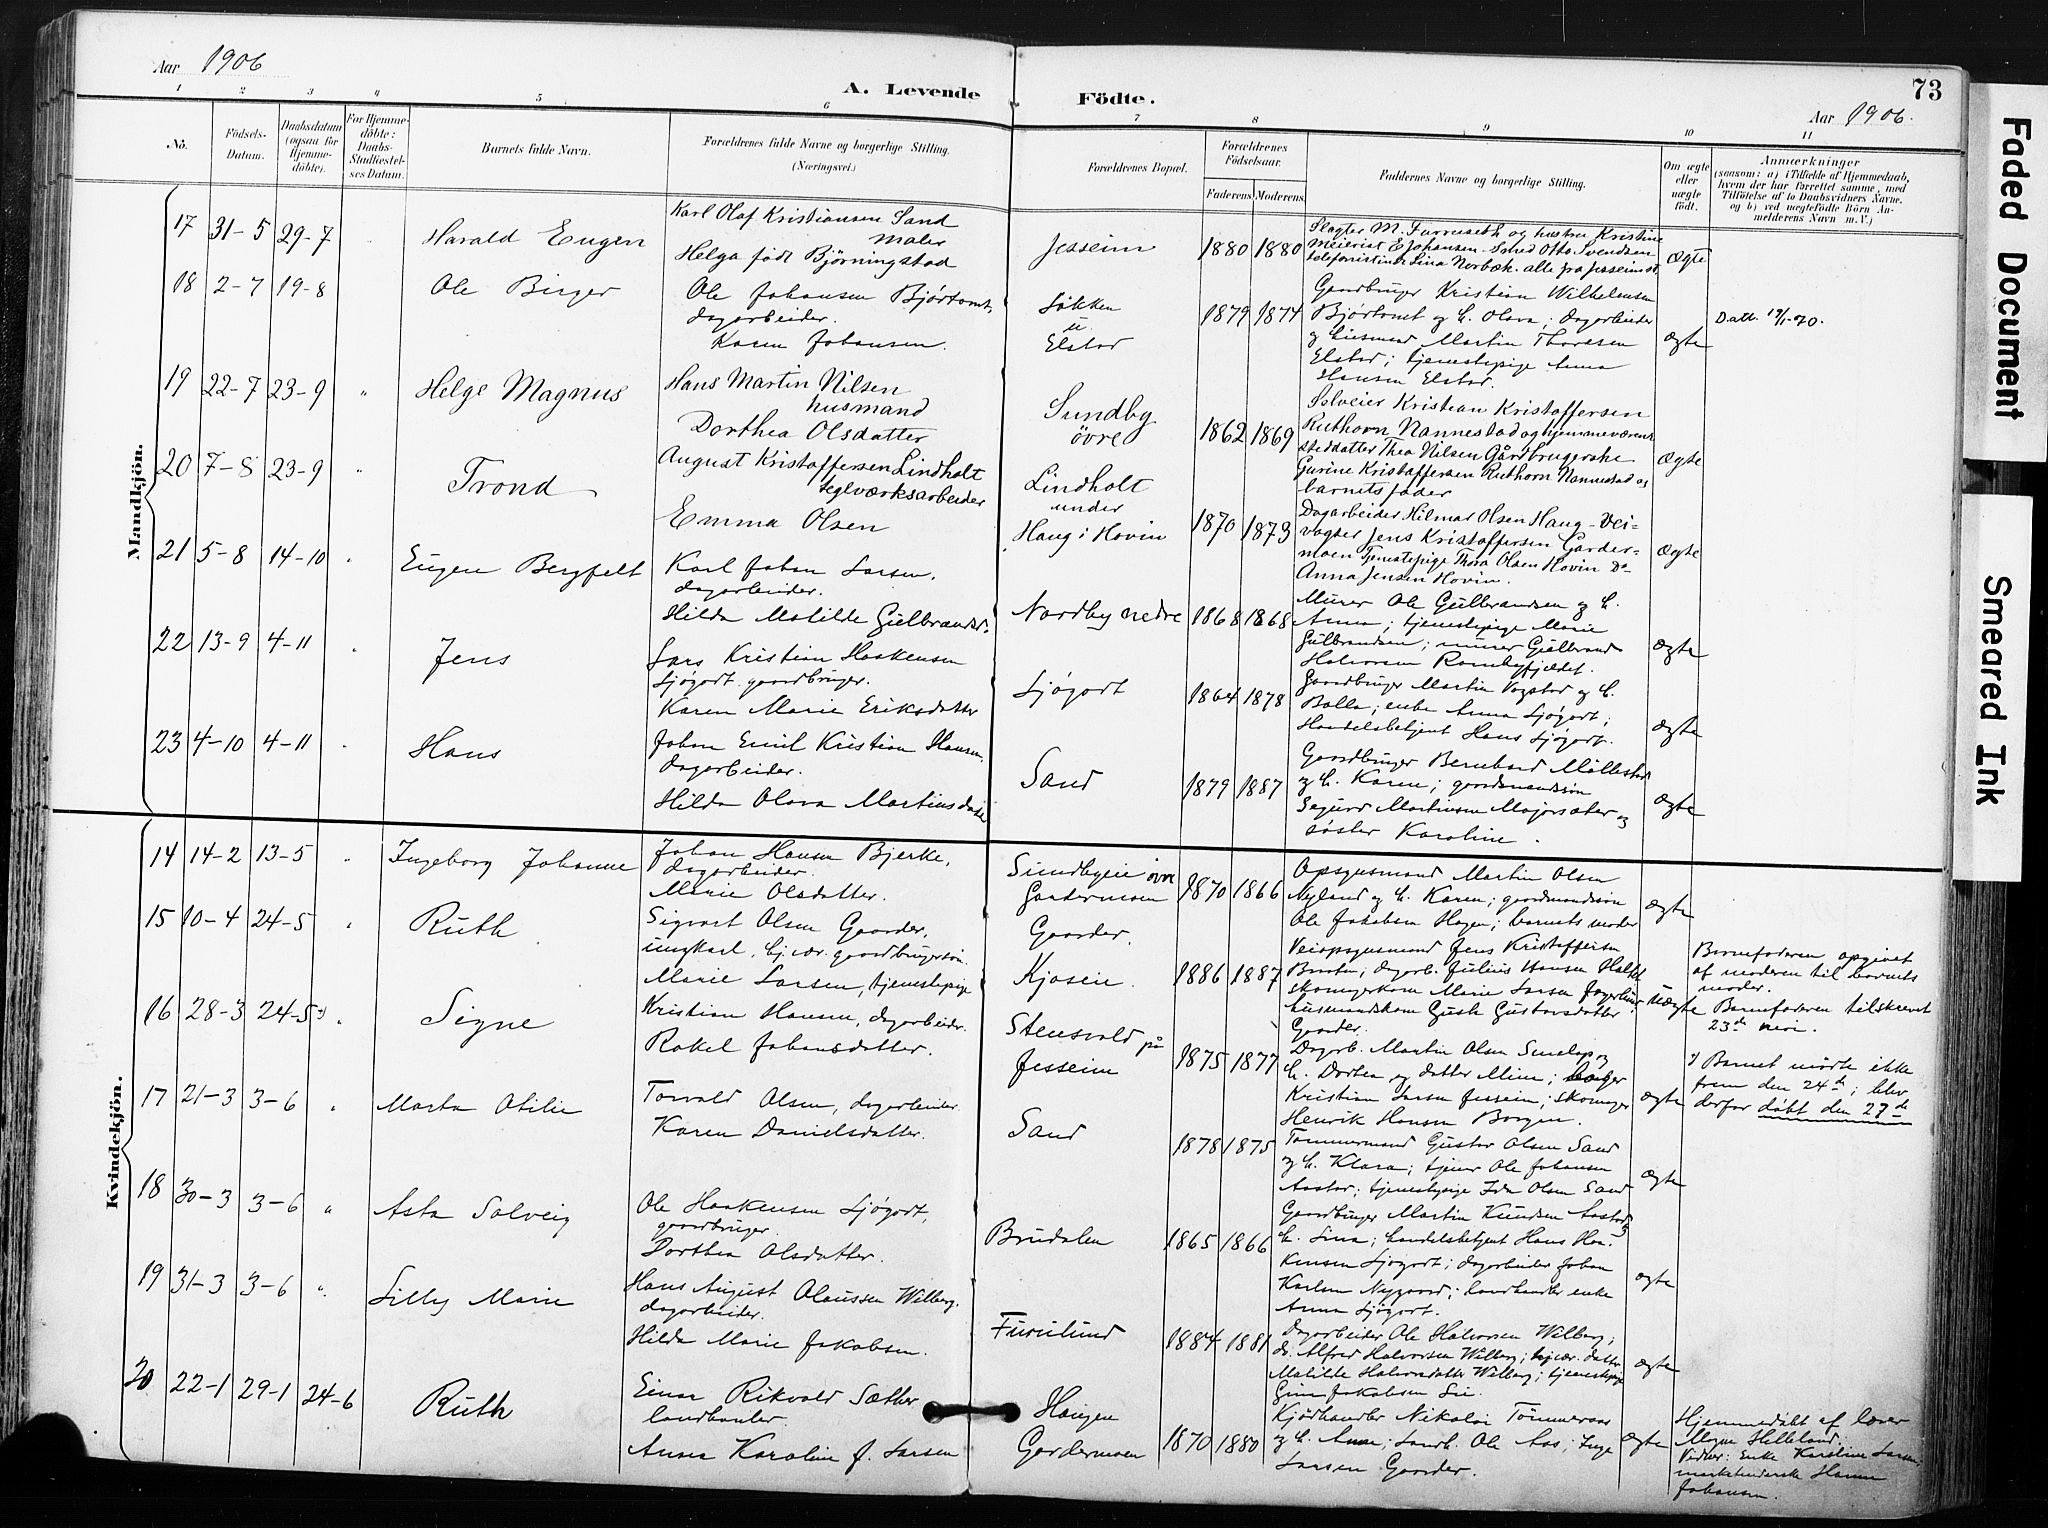 Aar 1906
A. Levende Födte.
73
Aar 1906.
1 2 3 4 5 6 7 8 9 10 11
No.
Födsels-Datum.
Daabsdatum (ogsaa for Hjemme-döbte).
For Hjemme-döbte: Daabs-Stadfæstel-ses Datum.
Barnets fulde Navn.
Forældrenes fulde Navne og borgerlige Stilling. (Næringsvei.)
Forældrenes Bopæl.
Forældrenes Födselsaar.
Faderens Moderens
Faddernes Navne og borgerlige Stilling.
Om ægte eller uægte födt.
Anmærkninger
(saasom: a) i Tilfælde af Hjemmedaab,
hvem der har forrettet samme, med
Tilföielse af to Daabsvidners Navne,
og b) ved uægtefödte Börn An-
melderens Navn m. V.)
Mandkjön.
17 31-5 29-7 Harald Eugen
Karl Olaf Kristiansen Sand
maler
Helga født Bjørningstad
Jesseim
1880 1880
Slagter M. Furruseth og hustru Kristine
Meierist E Johansen - Smed Otto Svendsen
telefonistinde Lina Norbæk. alle fra Jesseim st.
ægte
18 2-7 19-8 Ole Birger
Ole Johansen Bjørtomt,
dagarbeider.
Karen Johansen.
Løkken
u
Elstad
1879 1874
Gaardbruger Kristian Wilhelmsen
Bjørtomt og h. Olava; dagarbeider
og husmand Martin Thoresen
Elstad; tjenestepige Anna
Hansen Elstad.
ægte
Død 19/1-70.
19 22-7 23-9 " Helge Magnus
Hans Martin Nilsen
husmand
Dorthea Olsdatter
Sundby
øvre
1862 1869
Selveier Kristian Kristoffersen
Ruthorn Nannestad og hjemmeværende
steddatter Thea Nilsen Gårdbrugerske
Gurine Kristoffersen Ruthorn Nannestad og
barnets fader
ægte
20 7-8 23-9 " Trond
August Kristoffersen Lindholt
teglværksarbeider
Emma Olsen
Lindholt
under
Haug i Hovin
1870 1873
Dagarbeider Hilmar Olsen Haug - Vei-
vogter Jens Kristoffersen Garder-
moen Tjenestepige Thora Olsen Hovin Do
Anna Jensen Hovin.
ægte
21 5-8 14-10 " Eugen Bergfelt
Karl Johan Larsen,
dagarbeider.
Hilda Matilde Gulbrandsd.
Nordby nedre
1868 1868
Murer Ole Gulbrandsen og h.
Anna; tjenestepige Marie
Gulbrandsen; murer Gulbrand
Halvorsen Rambyfjeldet.
ægte
22 13-9 4-11 " Jens
Lars Kristian Haakensen
Sjøgort gaardbruger.
Karen Marie Eriksdatter
Sjøgort
1864 1878
Gaardbruger Martin Vogstad og h.
Bolla; enke Anna Sjøgort;
Handelsbetjent Hans Sjøgort.
ægte
23 4-10 4-11 " Hans
Johan Emil Kristian Hansen,
dagarbeider.
Hilda Olava Martinsdatter
Sand
1879 1887
Gaardbruger Bernhard Møllestad
og h. Karen; gaardmandssøn
Sigurd Martinsen Majorsæter og
søster Karoline.
ægte
Kvindekjön.
14 14-2 13-5 " Ingeborg Johanne
Johan Hansen Bjerke,
dagarbeider.
Marie Olsdatter.
Sundbyeie øvre
Gardermoen
1870 1866
Opsynsmand Martin Olsen
Nyland og h. Karen; gaardmandssøn
Ole Jakobsen Hagen; barnets moder
ægte
15 10-4 24-5 " Ruth
Sigvart Olsen Gaarder,
ungkarl, hj.vær. gaardbrugersøn.
Marie Larsen, tjenestepige
Gaarder.
Kjosein.
1886 1887
Veiopsynsmand Jens Kristoffersen
Braaten; dagarb. Julius Hansen
skomagerkone Marie Larsen Fagerlund,
husmandskone Gusta Gustavsdatter
Gaarder.
uægte
Barnefaderen opgivet
af moderen til barnets
moder.
Barnefaderen tilskrevet
23de mai.
16 28-3 24-5 1) " Signe
Kristian Hansen, dagarbeider.
Rakel Johansdatter.
Stensvold på
Jesseim
1875 1877
Dagarb. Martin Olsen og
h. Dortea og datter Mina;
Kristian Larsen Jesseim; skomager
Henrik Hansen Borgen.
ægte
1) Barnet mødte ikke
frem den 24de; blev
derfor døbt den 27de
17 21-3 3-6 " Marta Otilie
Torvald Olsen, dagarbeider.
Karen Danielsdatter.
Sand
1878 1875
Tømmermand Gustav Olsen Sand
og h. Klara; tjener Ole Johansen
Aastad; tjenestepige Ida Olsen Sand
ægte
18 30-3 3-6 " Asta Solveig
Ole Haakensen Sjøgort,
gaardbruger.
Dorthea Olsdatter.
Brudalen
1865 1866
Gaardbruger Martin Knudsen Aastad og
h. Lina; handelsbetjent Hans Haa-
kensen Sjøgort; dagarbeider Johan
Karlsen Nygaard; landhandler enke
Anna Sjøgort.
ægte
19 31-3 3-6 " Lilly Marie
Hans August Olaussen Wilberg.
dagarbeider.
Hilda Marie Jakobsen.
Furulund
1884 1881
Dagarbeider Ole Halvorsen Wilberg;
do. Alfred Halvorsen Wilberg; hj.vær. datter
Matilde Halvorsdatter Wilberg; tjenestepige
Gina Jakobsen Lie.
ægte
20 22-1 29-1 24-6 Ruth
Einar Rikvald Sæther
landhandler.
Anna Karoline f. Larsen
Haugen
Gardermoen
1870 1880
Kjødhandler Nikolai Tømmeraas
og h. Anna; Landh. Ole Aas; Inga
Larsen Gaarder.
ægte
Hjemmedøbt af lærer
Mogne Helleland.
Vidner: Enke Karoline Larsen,
marketenderske Hanna
Johansen.
Faded Document
Smeared Ink